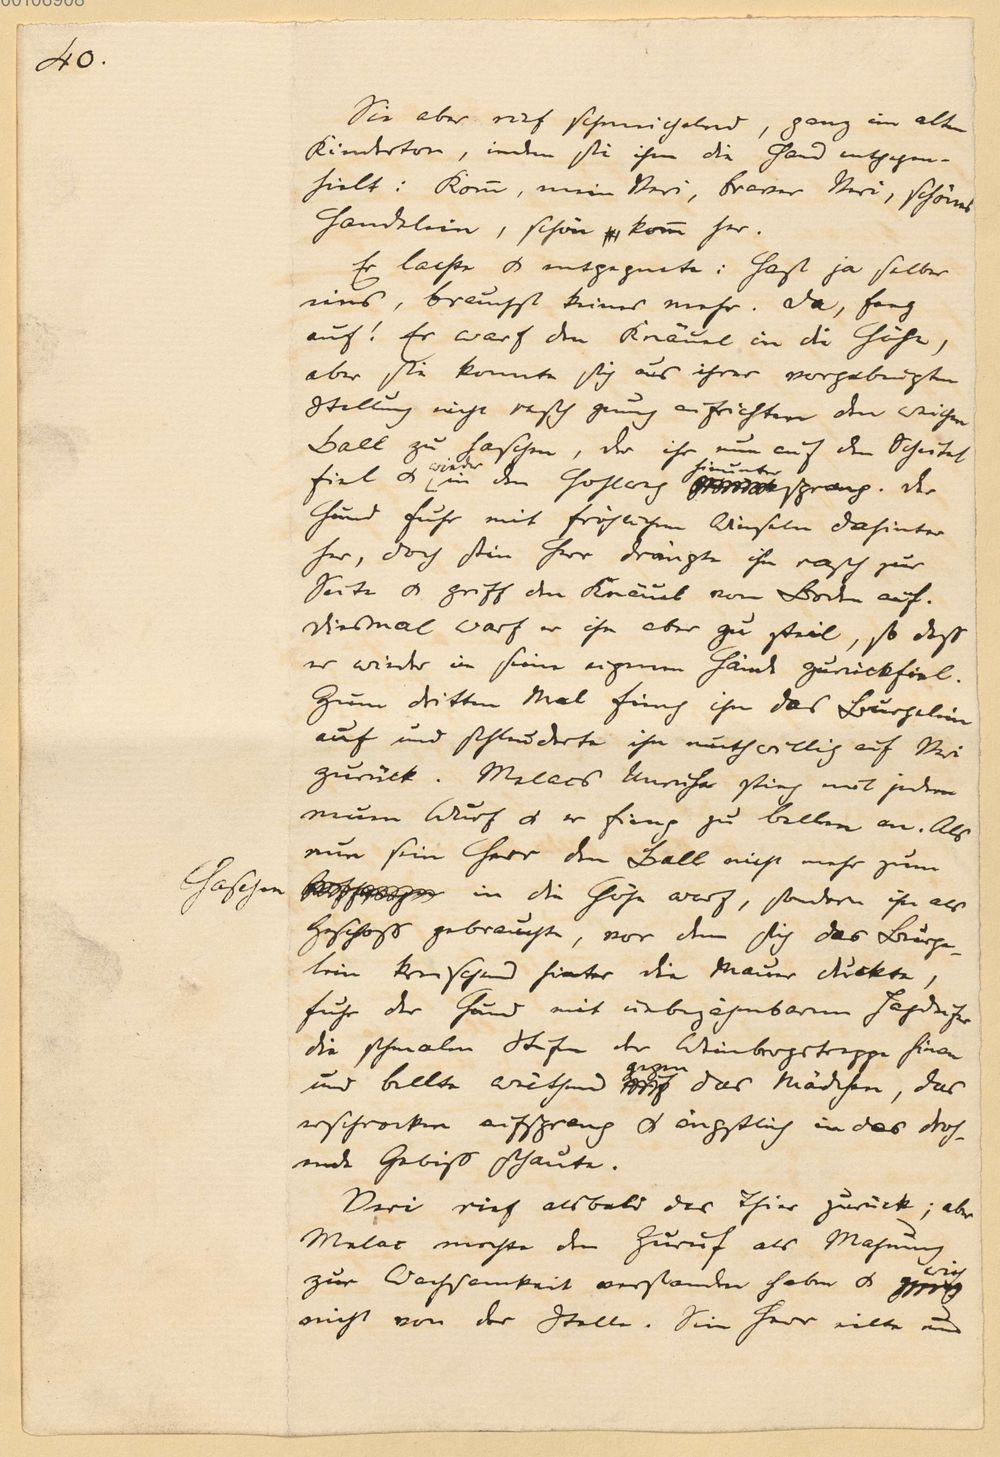 00106908
40.
Sie aber rief schmeichelnd, ganz im alten
Kinderton, indem sie ihm die Hand entgegen-
hielt: Kom̄, mein Veri, braver Veri, schönes
Handelein, schön kom̄ her.
Er lachte & entgegnete: Hast ja selber
eins, brauchst keines mehr. Da, fang
auf! Er warf den Knäuel in die Höhe,
aber sie konnte sich aus ihrer vorgebeugten
Stellung nicht rasch genug aufrichten den weichen
Ball zu haschen, der ihr nun auf den Scheitel
fiel & wieder in den Hohlweg hinunter sprang. Der
Hund fuhr mit fröhlichem Winseln dahinter
her, doch sein Herr drängte ihn rasch zur
Seite & griff den Knäuel vom Boden auf.
Diesmal warf er ihn aber zu steil, so dass
er wieder in seine eigenen Hände zurückfiel.
Zum dritten Mal fing ihn das Bürgelein
auf und schleuderte ihn muthwillig auf Veri
zurück. Melacs Unruhe stieg mit jedem
neuen Wurf & er fieng zu bellen an. Als
nun sein Herr den Ball nicht mehr zum
Haschen in die Höhe warf, sondern ihn als
Geschoss gebrauchte, vor dem sich das Bürge-
lein kreischend hinter die Mauer duckte,
fuhr der Hund mit unbezähmbarem Jagdeifer
die schmalen Stufen der Weinbergstreppe hinan
und bellte wüthend gegen das Mädchen, das
erschrocken aufsprang & ängstlich in das droh-
ende Gebiss schaute.
Veri rief alsbald das Thier zurück; aber
Melac mochte den Zuruf als Mahnung
zur Wachsamkeit verstanden haben & wich
nicht von der Stelle. Sein Herr eilte nun